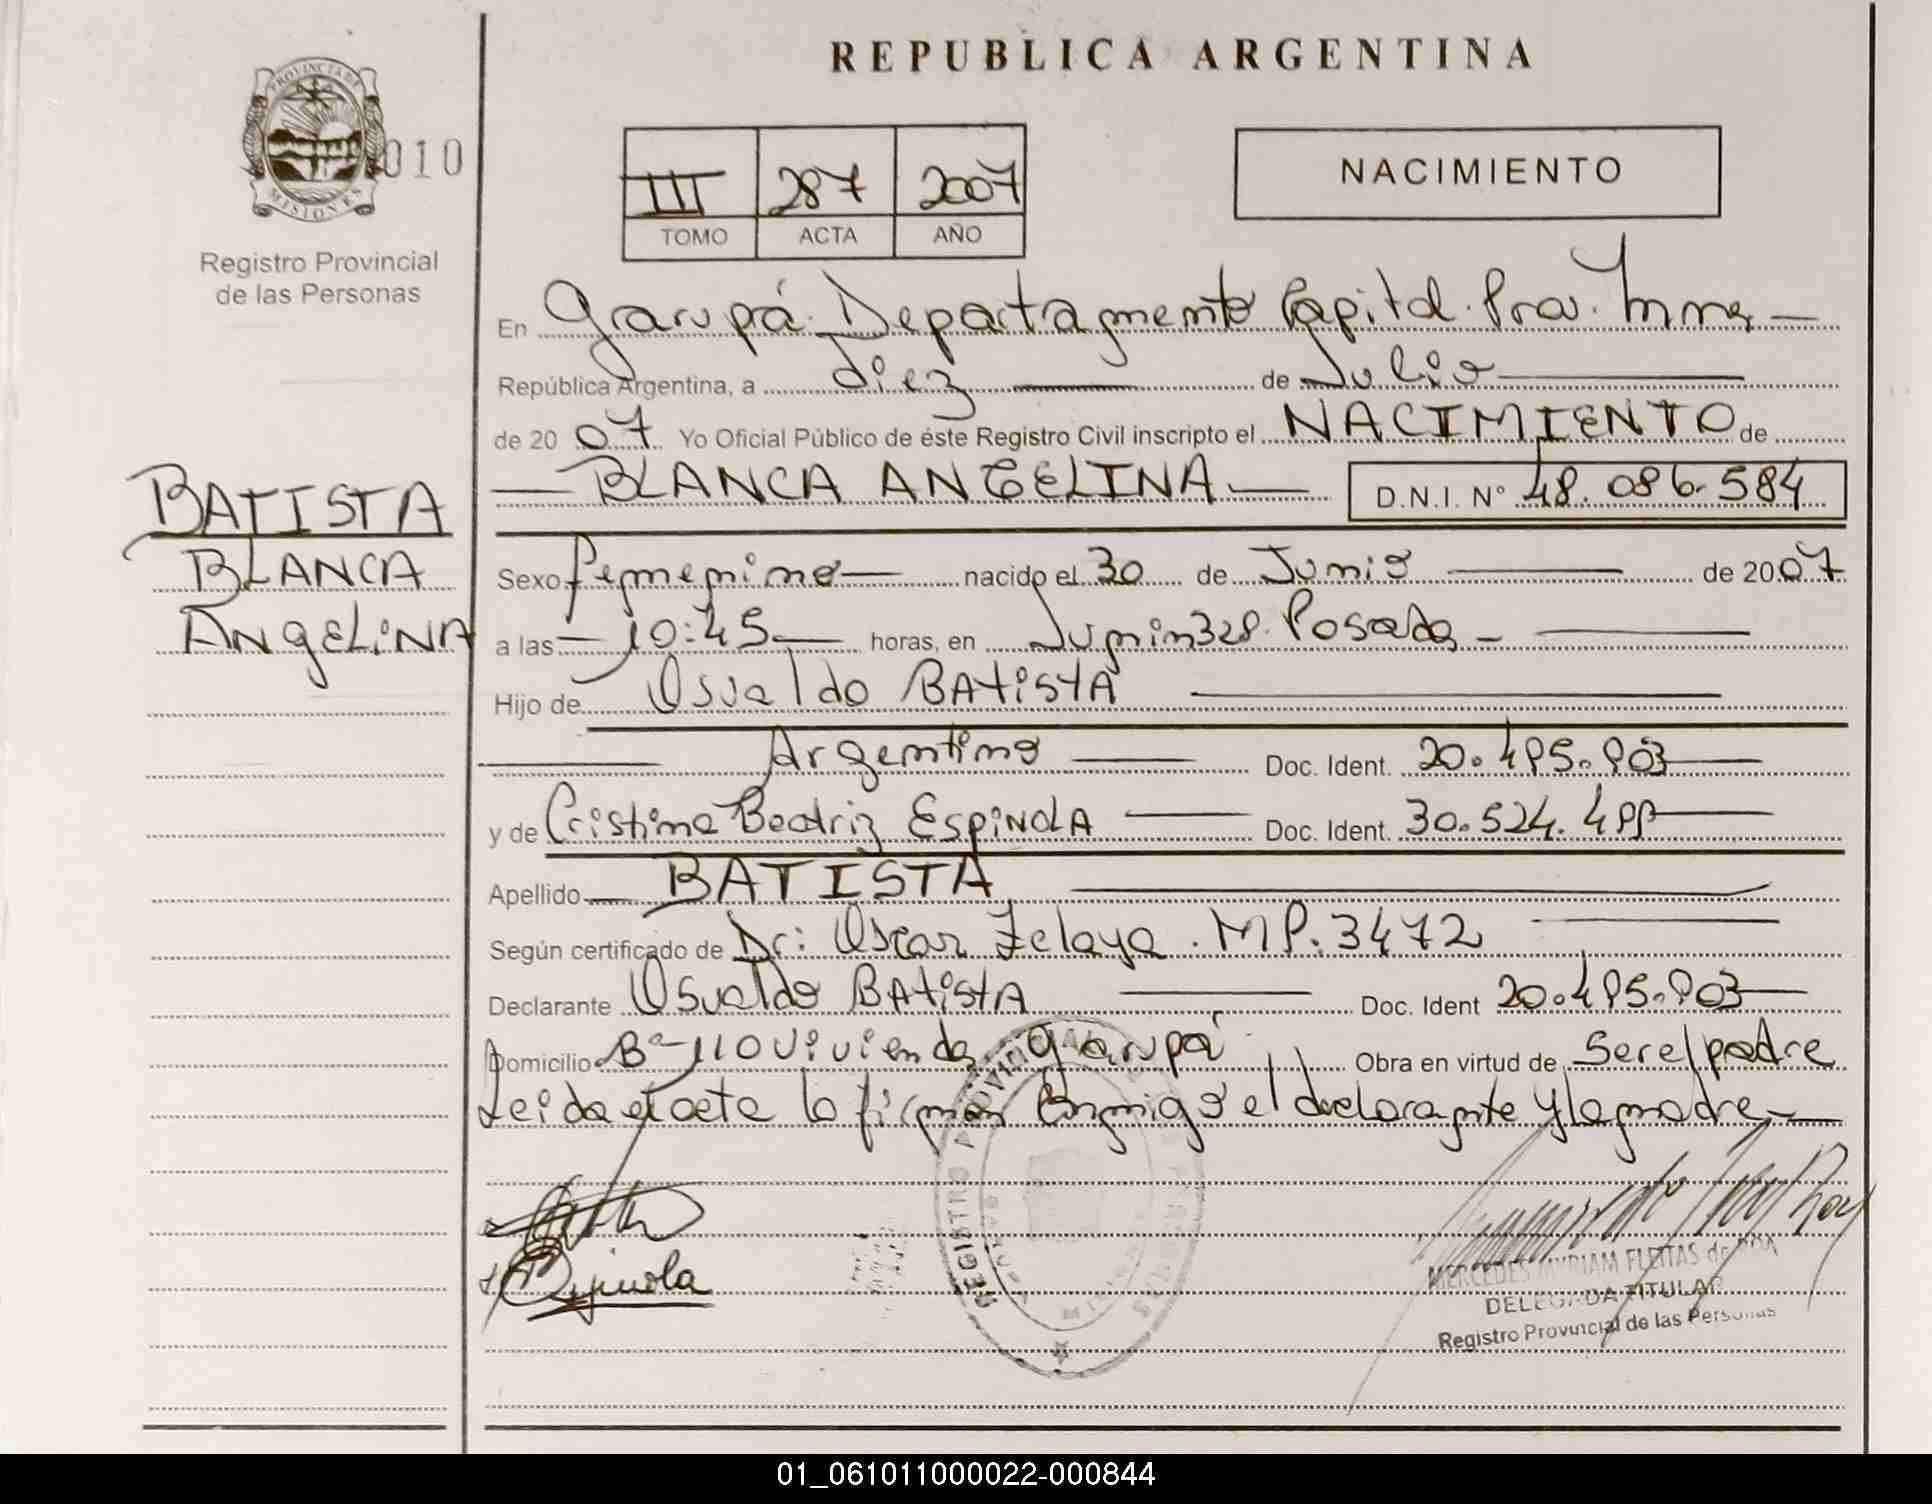 REPUBLICA ARGENTINA
PROVINCIA DE
MISIONES
010
Registro Provincial
de las Personas
III 287 2007
TOMO ACTA AÑO
NACIMIENTO
En Garupá. Departamento Capital. Prov. Mnes
República Argentina, a diez de Julio
de 2007 Yo Oficial Público de éste Registro Civil inscripto el NACIMIENTO de
BLANCA ANGELINA D.N.I. Nº 48.086.584
BATISTA
BLANCA
ANGELINA
Sexo Femenino nacido el 30 de Junio de 2007
a las 10:45 horas, en Junin 328. Posadas
Hijo de Osvaldo BATISTA
Argentino Doc. Ident. 20.495.903
y de Cristina Beatriz ESPINOLA Doc. Ident. 30.524.499
Apellido BATISTA
Según certificado de Dr: Oscar Zelaya. MP. 3472
Declarante Osvaldo BATISTA Doc. Ident 20.495.903
Domicilio Bº 110 Viviendas Garupá Obra en virtud de Ser el padre
Leida el acta la firman Conmigo el declarante y la madre
Espinola
REGISTRO PROVINCIAL DE LAS PERSONAS
GARUPA
MERCEDES MYRIAM FLEITAS de ROA
DELEGADA TITULAR
Registro Provincial de las Personas
01_061011000022-000844